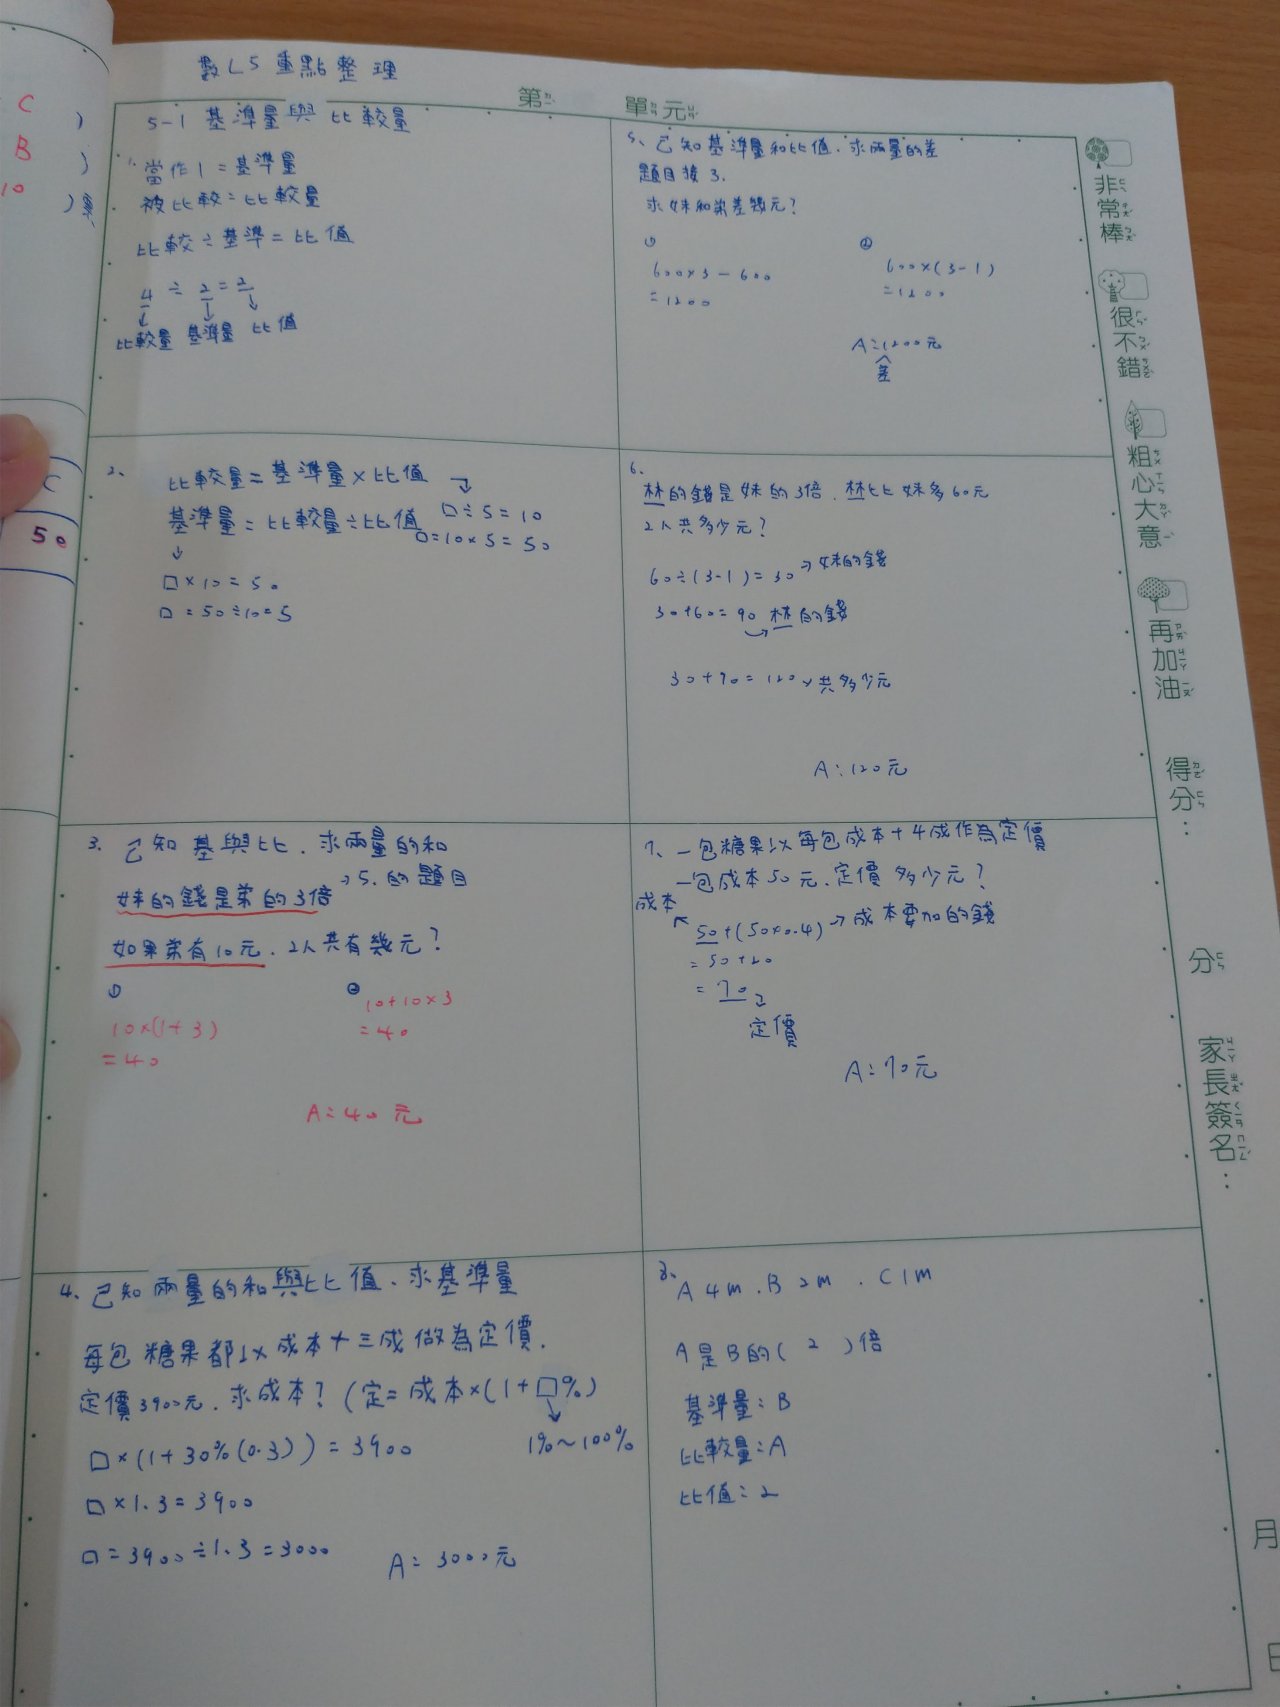 數L5重點整理
第 單元
5-1 基準量與比較量
1. 當作1=基準量
被比較=比較量
比較÷基準=比值
4÷2=2
比較量 基準量 比值
2.
比較量=基準量×比值
□÷5=10
□=10×5=50
基準量=比較量÷比值
□×10=50
□=50÷10=5
3. 已知基與比、求兩量的和
→5.的題目
妹的錢是弟的3倍
如果弟有10元、2人共有幾元?
①
10×(1+3)
=40
②
10+10×3
=40
A:40元
4. 已知兩量的和與比值、求基準量
每包糖果都以成本+三成做為定價、
定價3900元、求成本?(定=成本×(1+□%)
1%~100%
□×(1+30%(0.3))=3900
□×1.3=3900
□=3900÷1.3=3000
A:3000元
5、已知基準量和比值、求兩量的差
題目接3.
求妹和弟差幾元?
①
600×3-600
=1200
②
600×(3-1)
=1200
A:1200元
差
6.
林的錢是妹的3倍、林比妹多60元
2人共多少元?
60÷(3-1)=30→妹的錢
30+60=90 林的錢
30+90=120→共多少元
A:120元
7、一包糖果以每包成本+4成作為定價
一包成本50元、定價多少元?
成本
50+(50×0.4)→成本要加的錢
=50+20
=70
定價
A:70元
8、
A4m、B2m、C1m
A是B的( 2 )倍
基準量:B
比較量:A
比值:2
非常棒
很不錯
粗心大意
再加油
得分:
分
家長簽名:
月
日
C
B
10
C
50